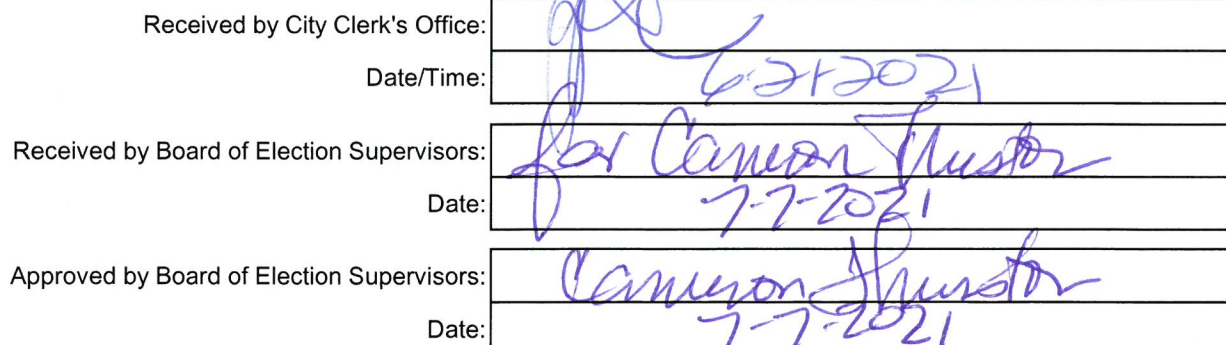 Received by City Clerk's Office:
Date/Time: 6-21-2021
Received by Board of Election Supervisors: for Cameron Thurston
Date: 7-7-2021
Approved by Board of Election Supervisors: Cameron Thurston
Date: 7-7-2021